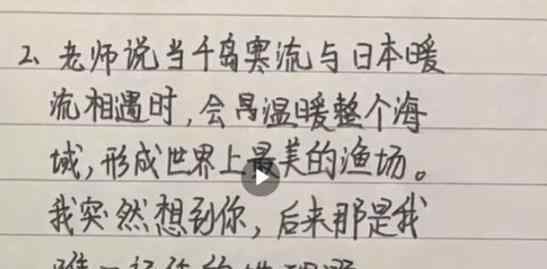 2、老师说当千岛寒流与日本暖
流相遇时，会温暖整个海
域，形成世界上最美的渔场。
我突然想到你，后来那是我
唯一